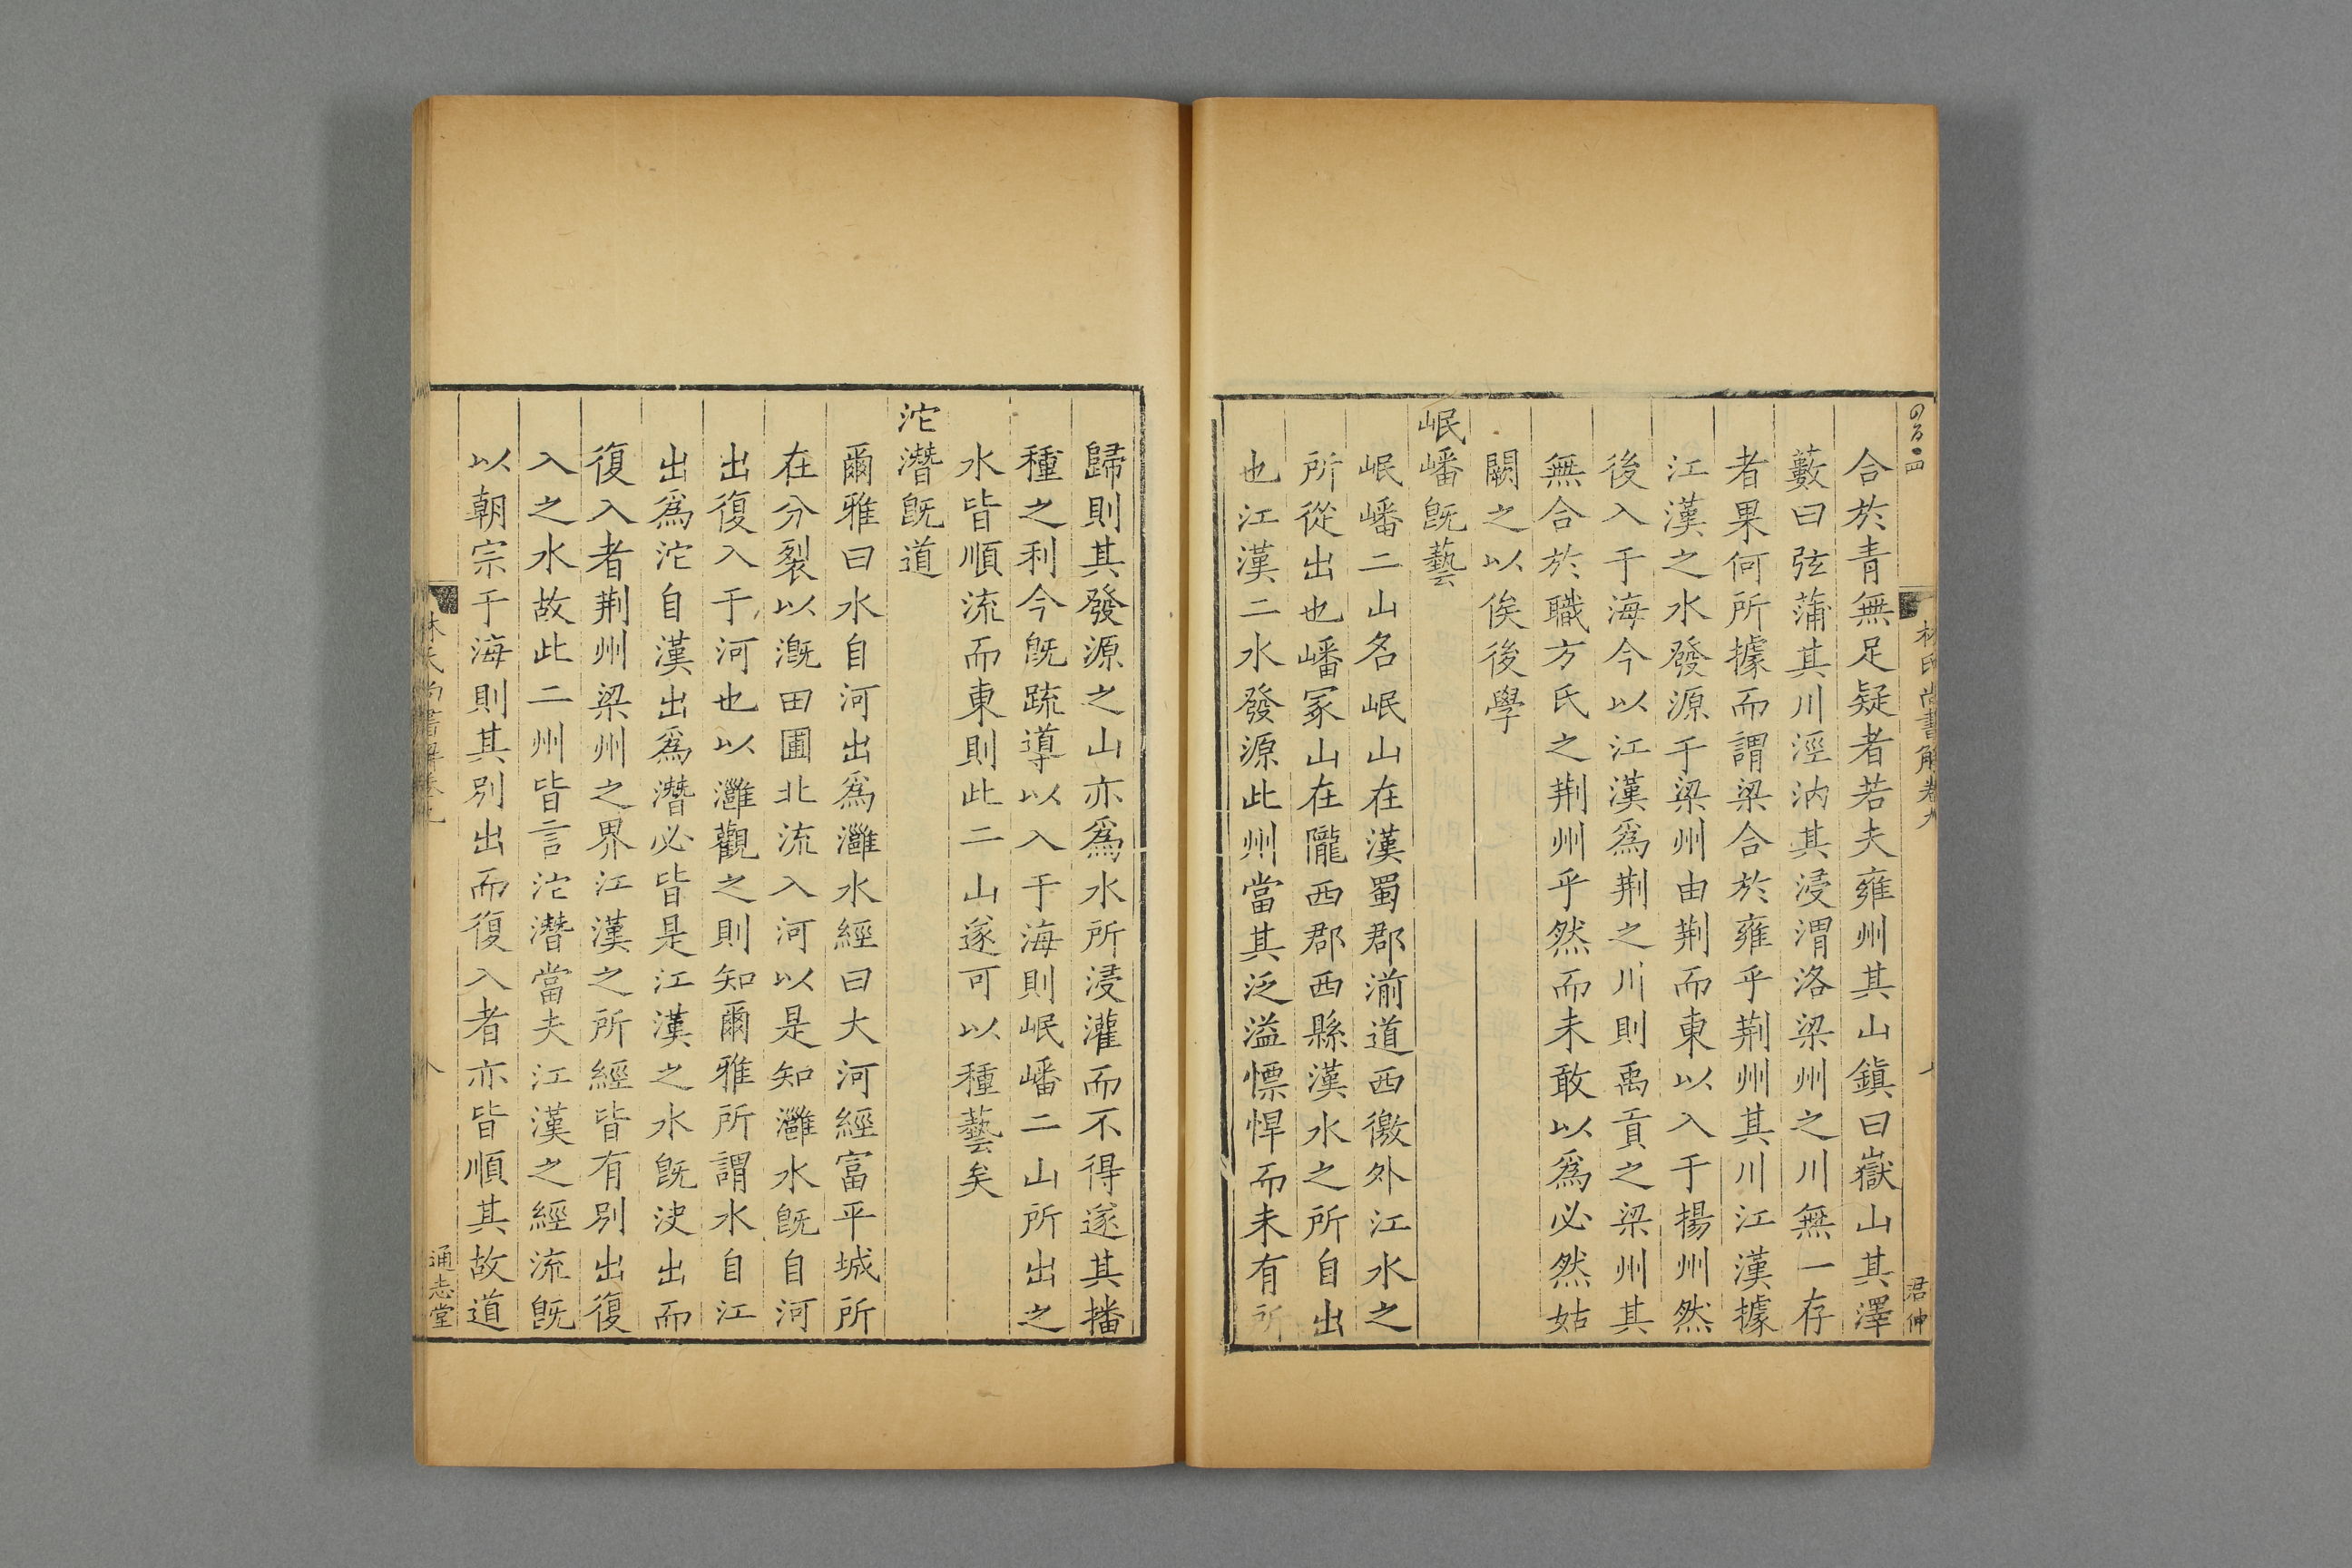 合於青無足疑者若夫雍州其山鎮曰嶽山其澤
藪曰弦蒲其川涇汭其浸渭洛梁州之川無一存
者果何所據而謂梁合於雍乎荆州其川江漢據
江漢之水發源于梁州由荆而東以入于揚州然
後入于海今以江漢爲荆之川則禹貢之梁州其
無合於職方氏之荆州乎然而未敢以爲必然姑
闕之以俟後學
岷嶓旣藝
岷嶓二山名岷山在漢蜀郡湔道西徼外江水之
所從出也嶓冢山在隴西郡西縣漢水之所自出
也江漢二水發源此州當其泛溢慓悍而未有所
林氏尚書解卷九
君仲
歸則其發源之山亦爲水所浸灌而不得遂其播
種之利今旣疏導以入于海則岷嶓二山所出之
水皆順流而東則此二山遂可以種藝矣
沱潛旣道
爾雅曰水自河出爲灉水經曰大河經富平城所
在分裂以漑田圃北流入河以是知灉水旣自河
出復入于河也以灉觀之則知爾雅所謂水自江
出爲沱自漢出爲潛必皆是江漢之水旣決出而
復入者荆州梁州之界江漢之所經皆有別出復
入之水故此二州皆言沱潛當夫江漢之經流旣
以朝宗于海則其別出而復入者亦皆順其故道
林氏尚書解卷九
八
通志堂